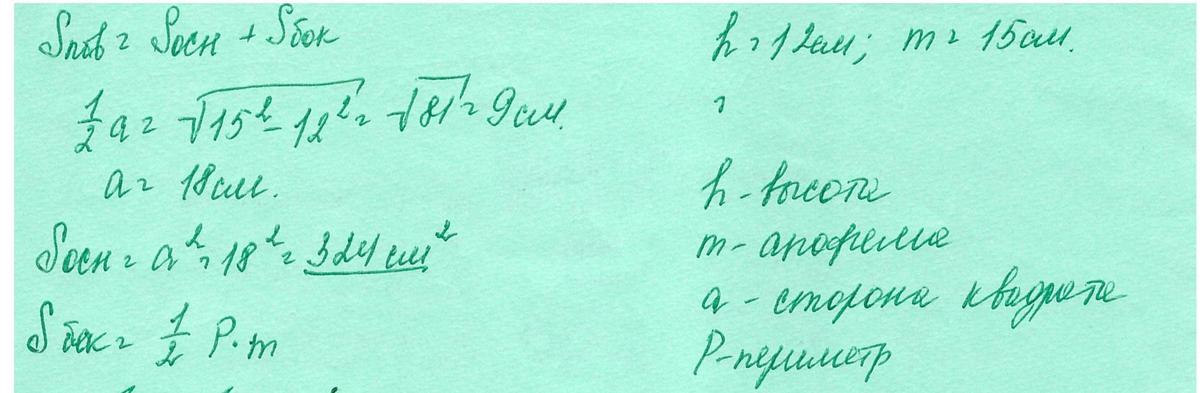 Sпов = Sосн + Sбок
1/2 a = √15² - 12² = √81 = 9 см.
a = 18 см.
Sосн = a² = 18² = 324 см²
Sбок = 1/2 P·m
h = 12 см; m = 15 см.
?
h - высота
m - апофема
a - сторона квадрата
P - периметр